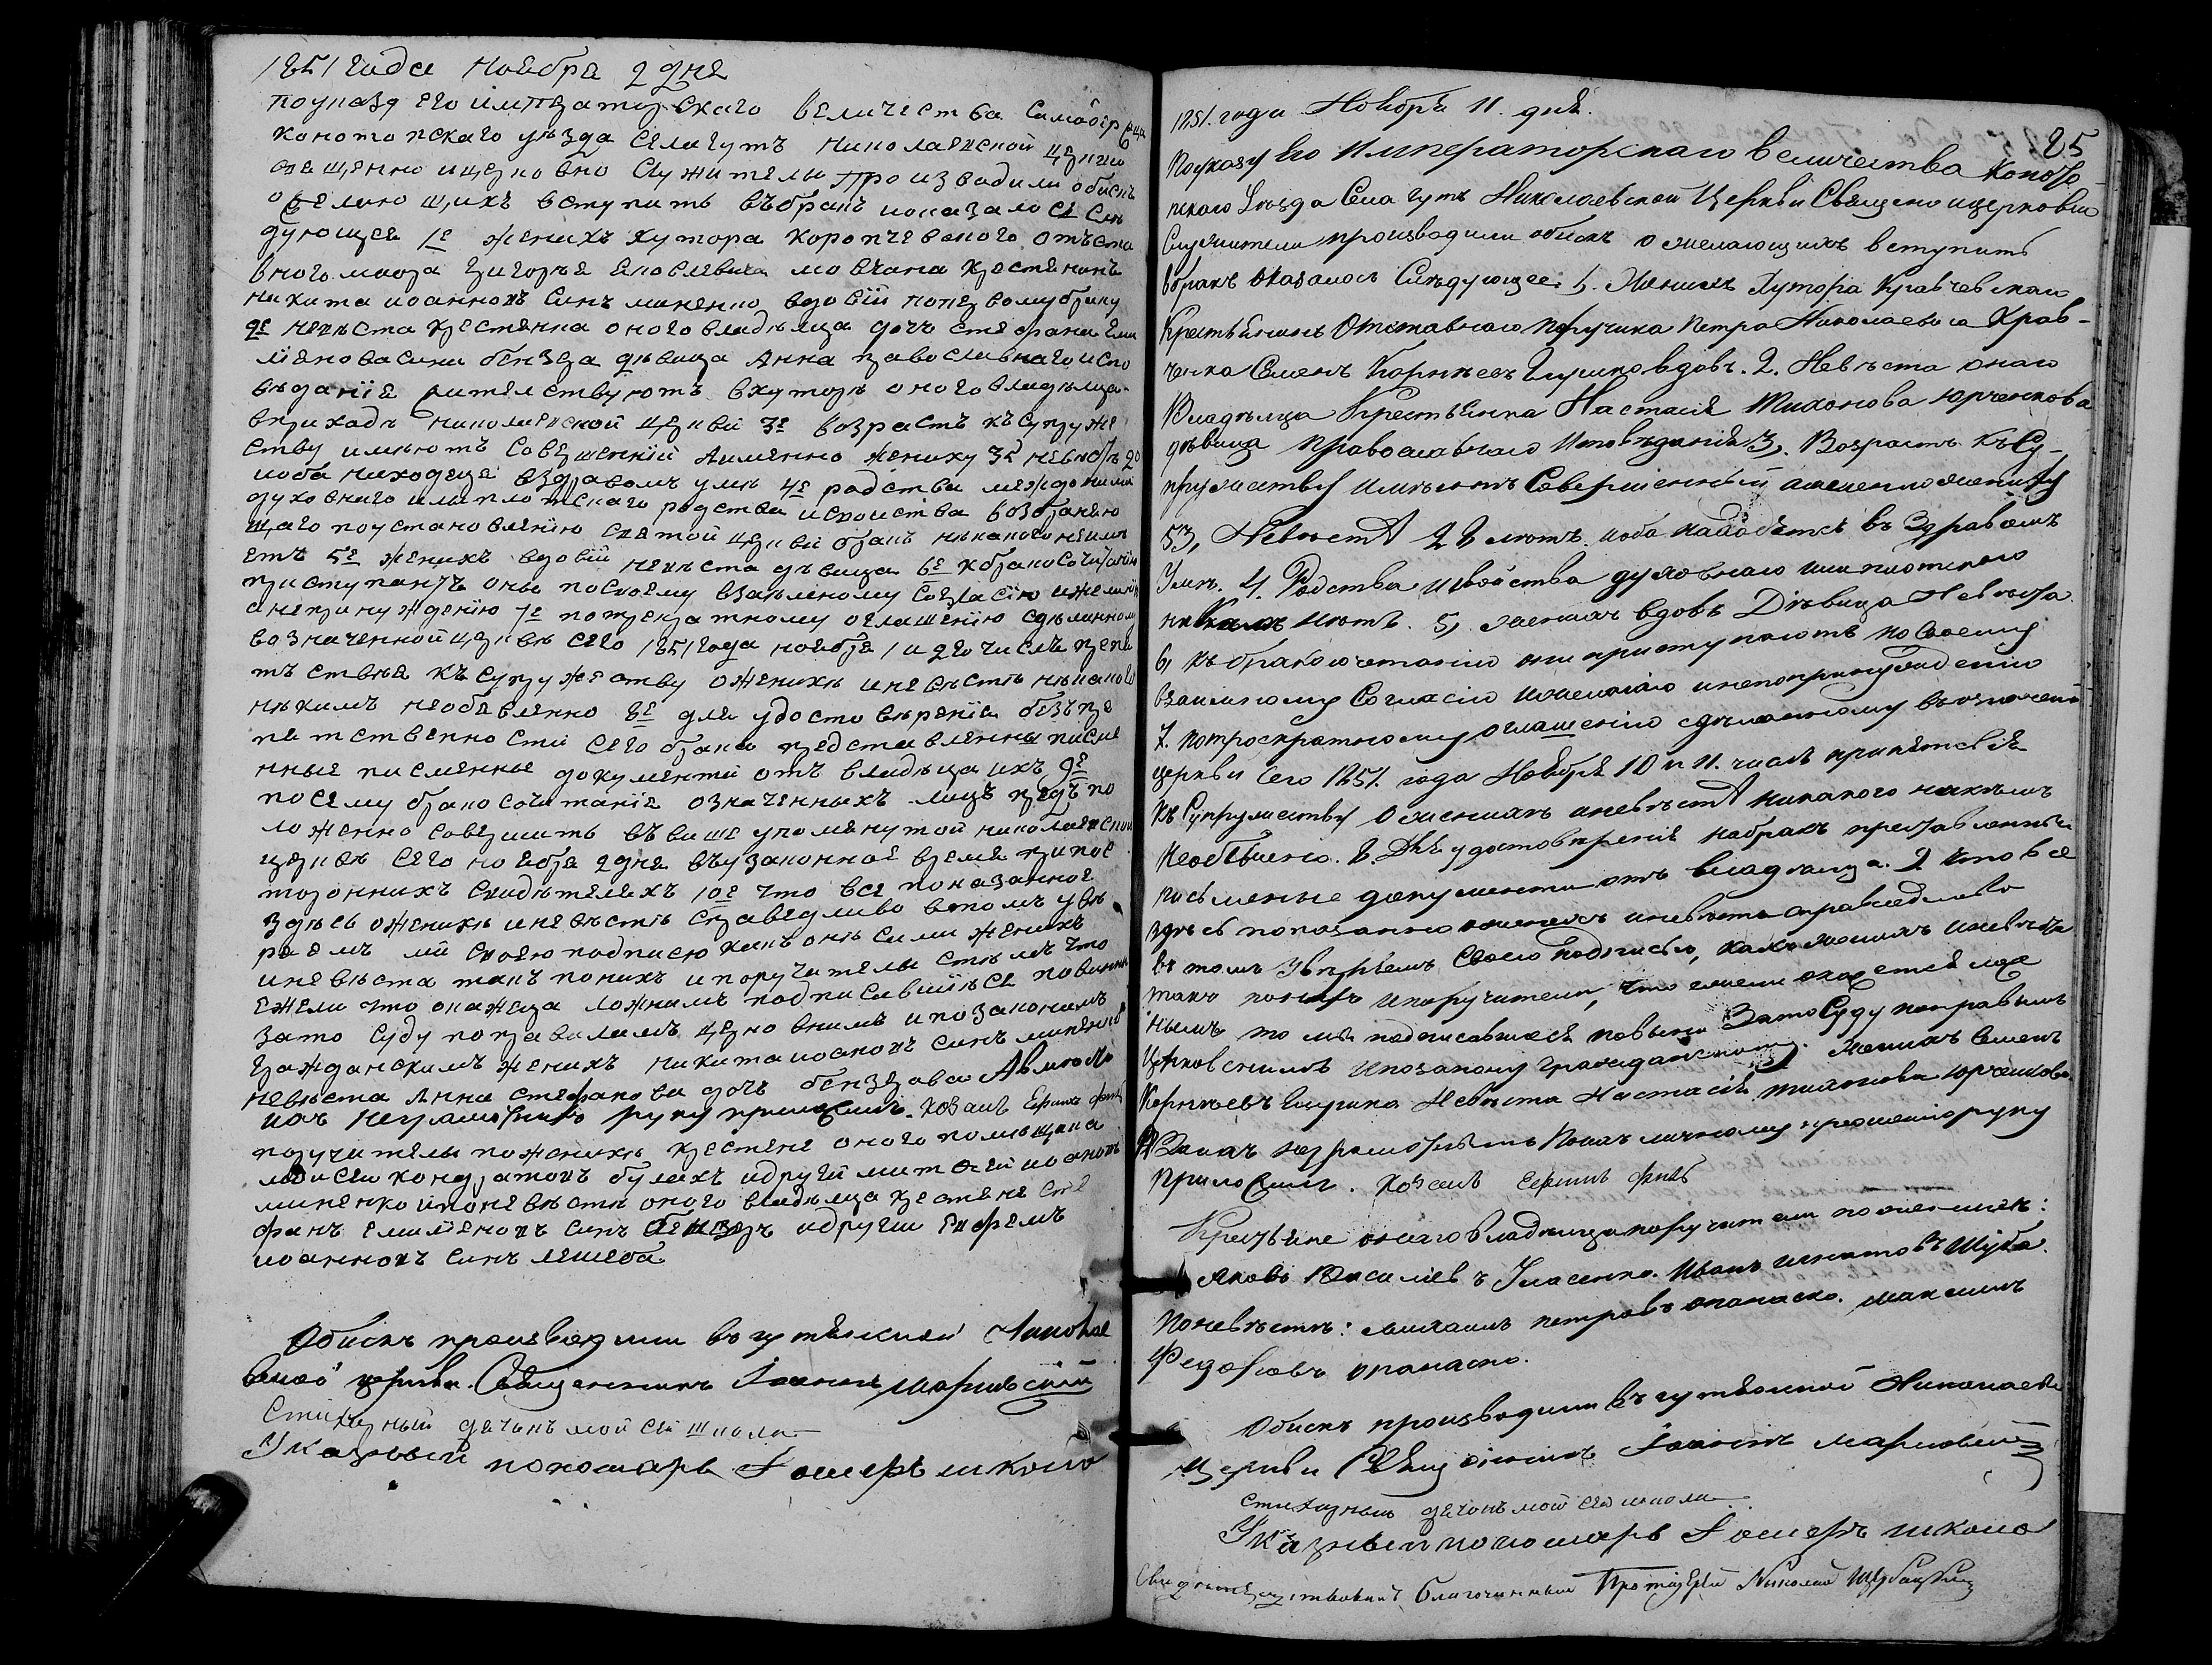 1851 года Ноября 2 дня
По указу его императорскаго величества самодержца
конотопскаго уезда села гутъ Николаевской церкви
священно и церковно служители производили обискъ
о желающихъ вступить въ бракъ и оказалося слѣ
дующея 1е женихъ хутора отъ ста
вного маиора григорья яковлевича мовчана крестянинъ
никита иоанновъ синъ миненко вдовій по первому браку
2е невѣста крестянка оного владѣлца дочъ стефана Емил
ия нова сина дѣвица Анна православнаго испо
вѣданія жителствуютъ в хуторѣ оного владѣлца
в приходѣ николаевской церкви 3е возрастъ къ супруже
ству имѣютъ совершенній а именно жениху 35 невѣстѣ 20
и оба находеця в здравомъ умѣ 4е родства между ними
духовнаго или плотскаго родства и своиства возбраняю
щаго по установлению святой церкви бракъ никакого неимѣ
етъ 5е женихъ вдовій невѣста дѣвица 6е к бракосочитанию
приступаютъ оны по своему взаемному согласію и желанію
а не принуждению 7е по троекратному оглашению сдѣланному
во значенной церквѣ сего 1851 года ноября 1 и 2го числѣ препя
тствия къ супружеству о женихѣ и невѣстѣ никакого
нѣкимъ необявленно 8е для удостовѣренія безъ пре
пятственности сего брака представленны писме
нные писменные документи отъ владѣлца ихъ 9е
по сему бракосочитаніе означенныхъ лицъ предъ по
ложенно совершить въ више упомянутой николаевской
церквѣ сего ноября 2 дня въ узаконное время при пос
торонныхъ свидѣтелехъ 10е что все показанное
здѣсь о женихѣ и невѣстѣ справедливо в томъ увѣ
раемъ ми своею подписю какъ онѣ сами женихъ
и невѣста такъ по нихъ и поручители стѣмъ что
ежели что окажеца ложнимъ подписавшіеся повинни
за то суду по правиламъ церковнимъ и по законамъ
гражданскимъ женихъ никита иоановъ синъ миненко
невѣста Анна стефанова дочъ а вмѣсто
ихъ неграмотнихъ руку приложилъ козакъ Ефимъ
поручители по женихѣ крестяне оного помѣщика
моисеи кондратовъ булахъ и другій матвѣй иоановъ
миненко и по невѣстѣ оного владѣлца крестяне сте
фанъ емилияновъ синъ и другии Ефремъ
иоанновъ синъ
Обискъ производили въ гутянской Николае
вской церкви. Священникъ Іоаннъ Марковскій
стихарный дячокъ мойсей школа
Указный пономаръ школо
85
1851. года Ноября 11. дня.
По указу Его Императорскаго величества Коното
пскаго Уезда Села гутъ Николаевской Церкви Священо и церковно
служители производили обискъ о желающихъ вступить
въ бракъ оказалось Слѣдующее: 1, Женихъ Хутора Кравчевскаго
Крестьянинъ Отставнаго Поручика Петра Николаевича Крав-
ченка Семенъ Корнѣевъ вдовъ. 2. Невѣста онаго
Владѣлца Крестьянка Настасія Тихонова Юрченкова
дѣвица Православнаго Исповѣданія 3, Возрастъ къ Су-
пружеству имѣютъ Совершенный а именно жениху
53, Невѣстѣ 22 лѣтъ. и оба находятся въ Здравомъ
Умѣ. 4. Родства и свойства духовнаго или плотскаго
никакихъ 5, женихъ вдовъ Дѣвица Невѣста.
6, къ бракосочетанию они приступаютъ по Своему
взаимному Согласію и желанію и не по принуждению
7. по троекратному оглашению сдѣланному въ означен
церкви Сего 1851. года Ноября 10 и 11. числѣ препятствія
къ Супружеству о женихѣ и невѣстѣ никакого никѣмъ
необъявлено. 8 Для удостовѣренія на бракъ представленны
письменные документи отъ владѣлца. 9 что все
здѣсь показанно о женихѣ и невѣстѣ справедливо
въ томъ Увѣряемъ Своею подписью, какъ женихъ и невѣста
такъ по нихъ и поручители, что ежели окажется лож
нымъ то мы подписавшіеся повинни За то Суду по правиламъ
Церковнимъ и по закону Гражданскому. Женихъ Семенъ
Корнѣевъ Невѣста Настасія Тихонова Юрченкова
неграмотныхъ по ихъ личному прошению руку
приложилъ. Козакъ Ефимъ
Крестьяне онаго владѣлца поручители по женихѣ:
Яковъ Василіевъ Уласенко. Иванъ Игнатовъ Шуба.
По невѣстѣ: Михаилъ Петровъ Опанаско. Максимъ
Федоровъ Опанаско.
Обискъ производили въ гутянской Николаевс
Церкви Священникъ Іоаннъ Марковскій
стихарный дячокъ мойсей школа
Указный пономаръ школо
Свидѣтельствовалъ Благочинный Протоіерей Николай